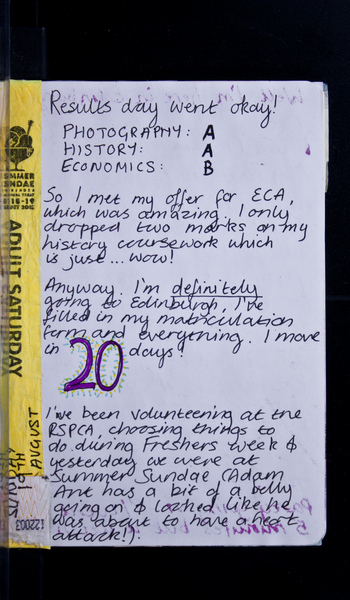 Results day went okay!
PHOTOGRAPHY: A
HISTORY: A
ECONOMICS: B
So I met my offer for ECA,
which was amazing. I only
dropped two marks on my
history coursework which
is just... wow!
Anyway. I'm definitely
going to Edinburgh, I've
filled in my matriculation
form and everything. I move
in 20 days!
I've been volunteering at the
RSPCA, choosing things to
do during Freshers week &
yesterday we were at
Summer Sundae (Adam
Ant has a bit of a belly
going on & looked like he
was about to have a heart
attack!).
SUMMER
SUNDAE
ADULT SATURDAY
19TH AUGUST
122003